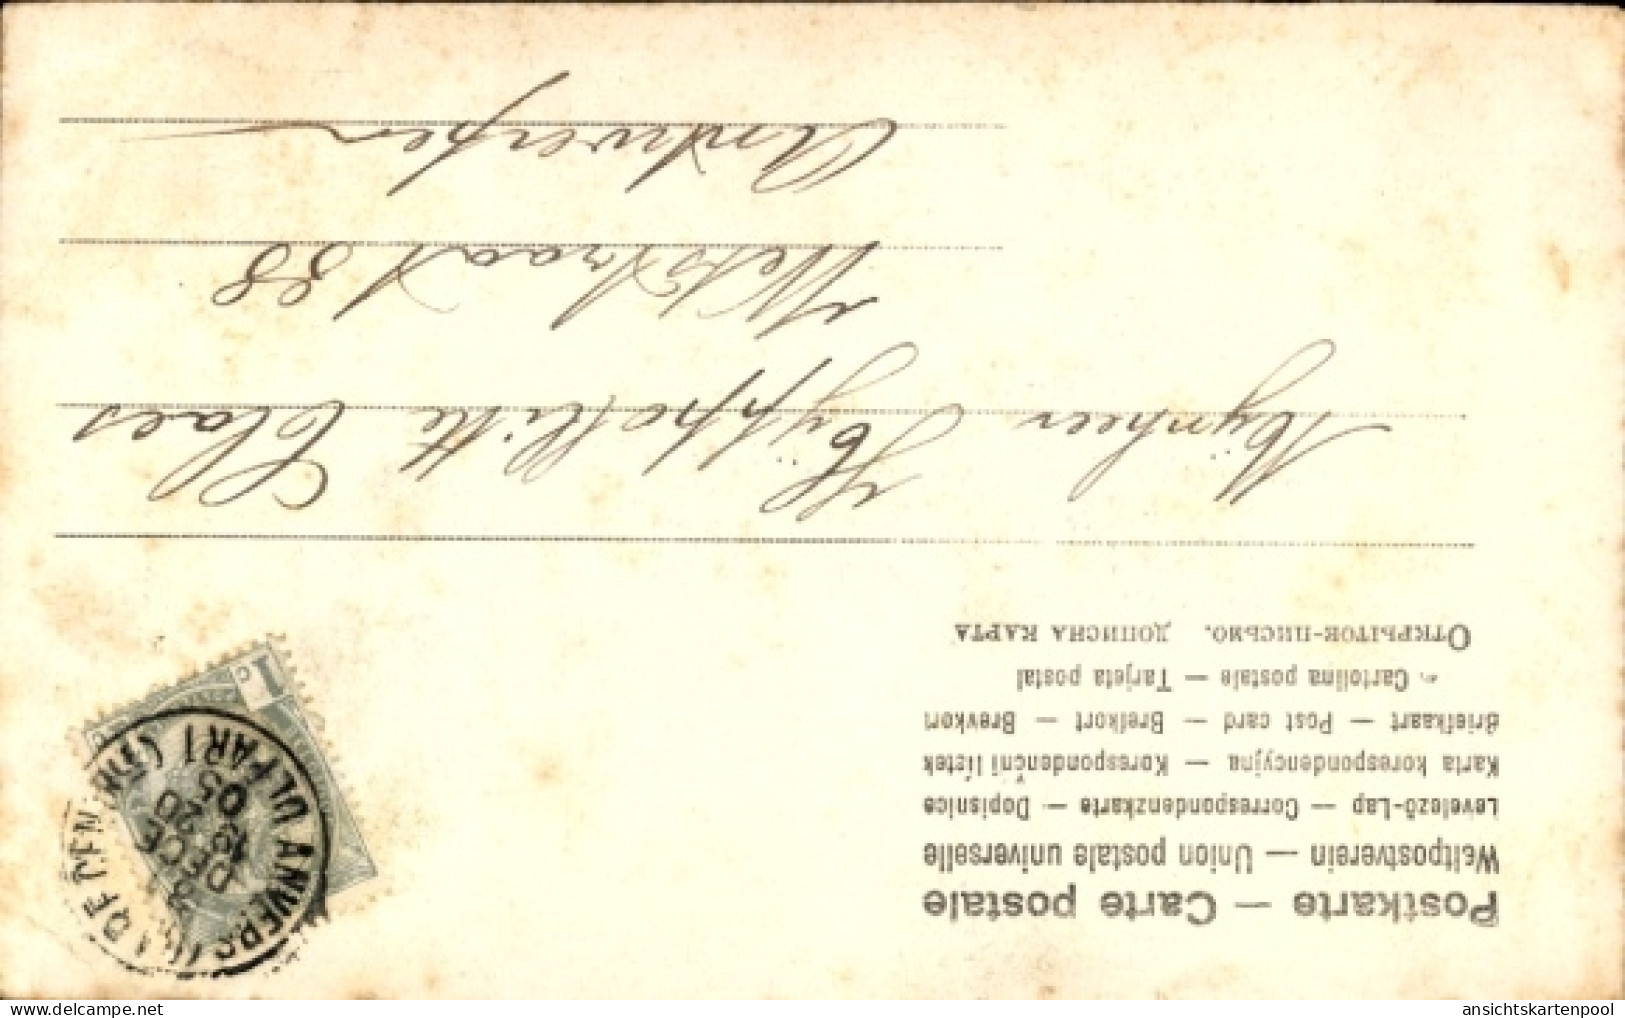 Postkarte — Carte postale
Weltpostverein — Union postale universelle
Levelező-Lap — Correspondenzkarte — Dopisnice
Karta korespondencyjna — Korespondenční lístek
Briefkaart — Post card — Brefkort — Brevkort
Cartolina postale — Tarjeta postal
Открытое-письмо. дописна карта
Mynheer Hyppollitte Claes
Wetstraat 88
Antwerpen
1 c
31
DECE
20
05
ansichtskartenpool